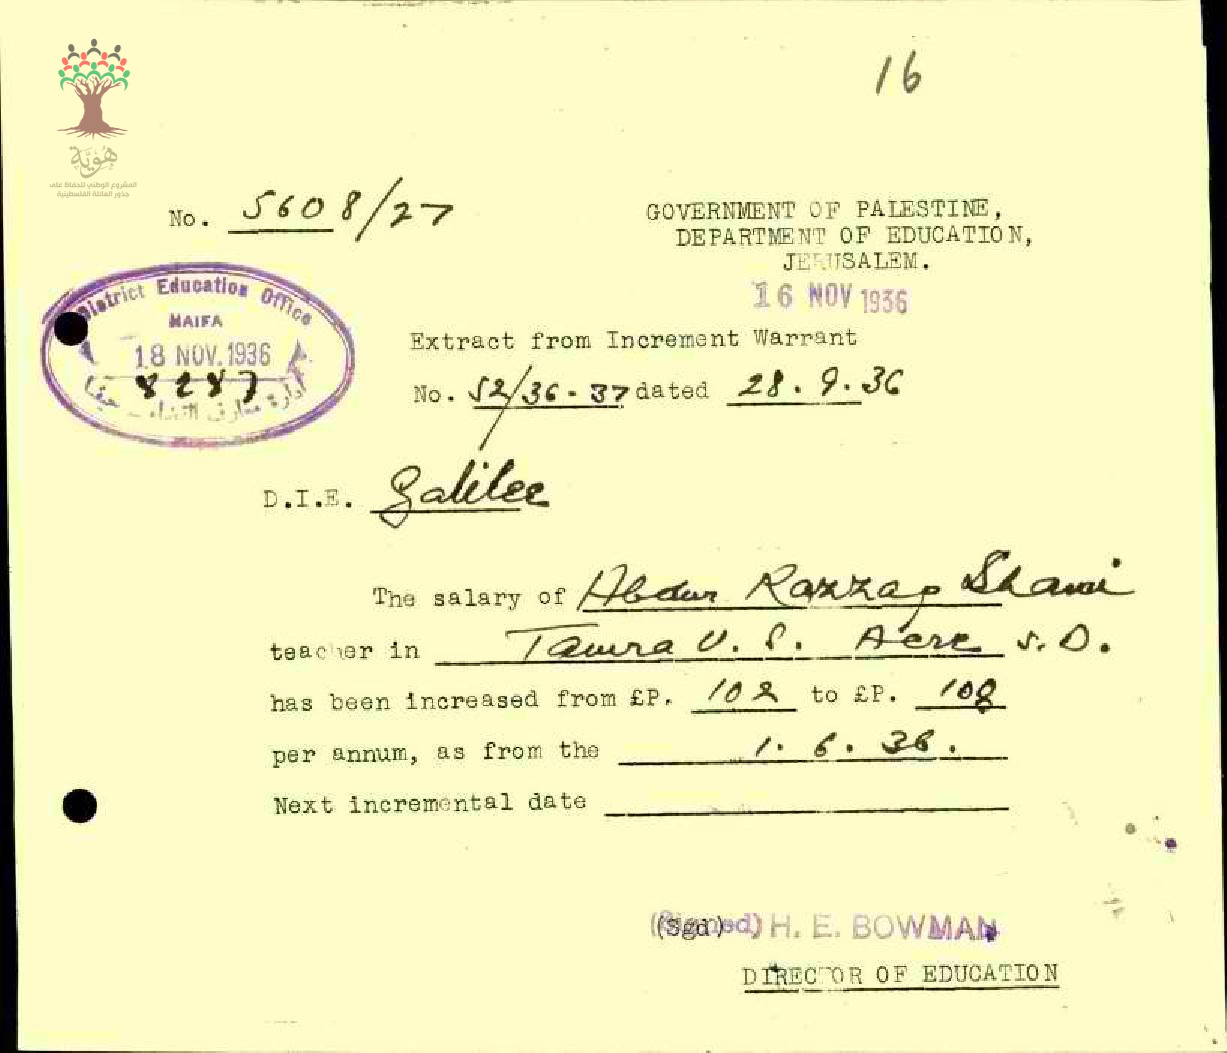 16
هُوِيَّة
المشروع الوطني للحفاظ على
جذور العائلة الفلسطينية
No. 5608/27
GOVERNMENT OF PALESTINE,
DEPARTMENT OF EDUCATION,
JERUSALEM.
16 NOV 1936
District Education Office
HAIFA
18 NOV. 1936
8287
ادارة معارف اللواء حيفا
Extract from Increment Warrant
No. 52/36-37 dated 28.9.36
D.I.E. Galilee
The salary of Abdur Razzaq Shami
teacher in Tamra V. S. Acre S.D.
has been increased from £P. 102 to £P. 108
per annum, as from the 1.6.36.
Next incremental date
(Sgd) (Signed) H. E. BOWMAN
DIRECTOR OF EDUCATION